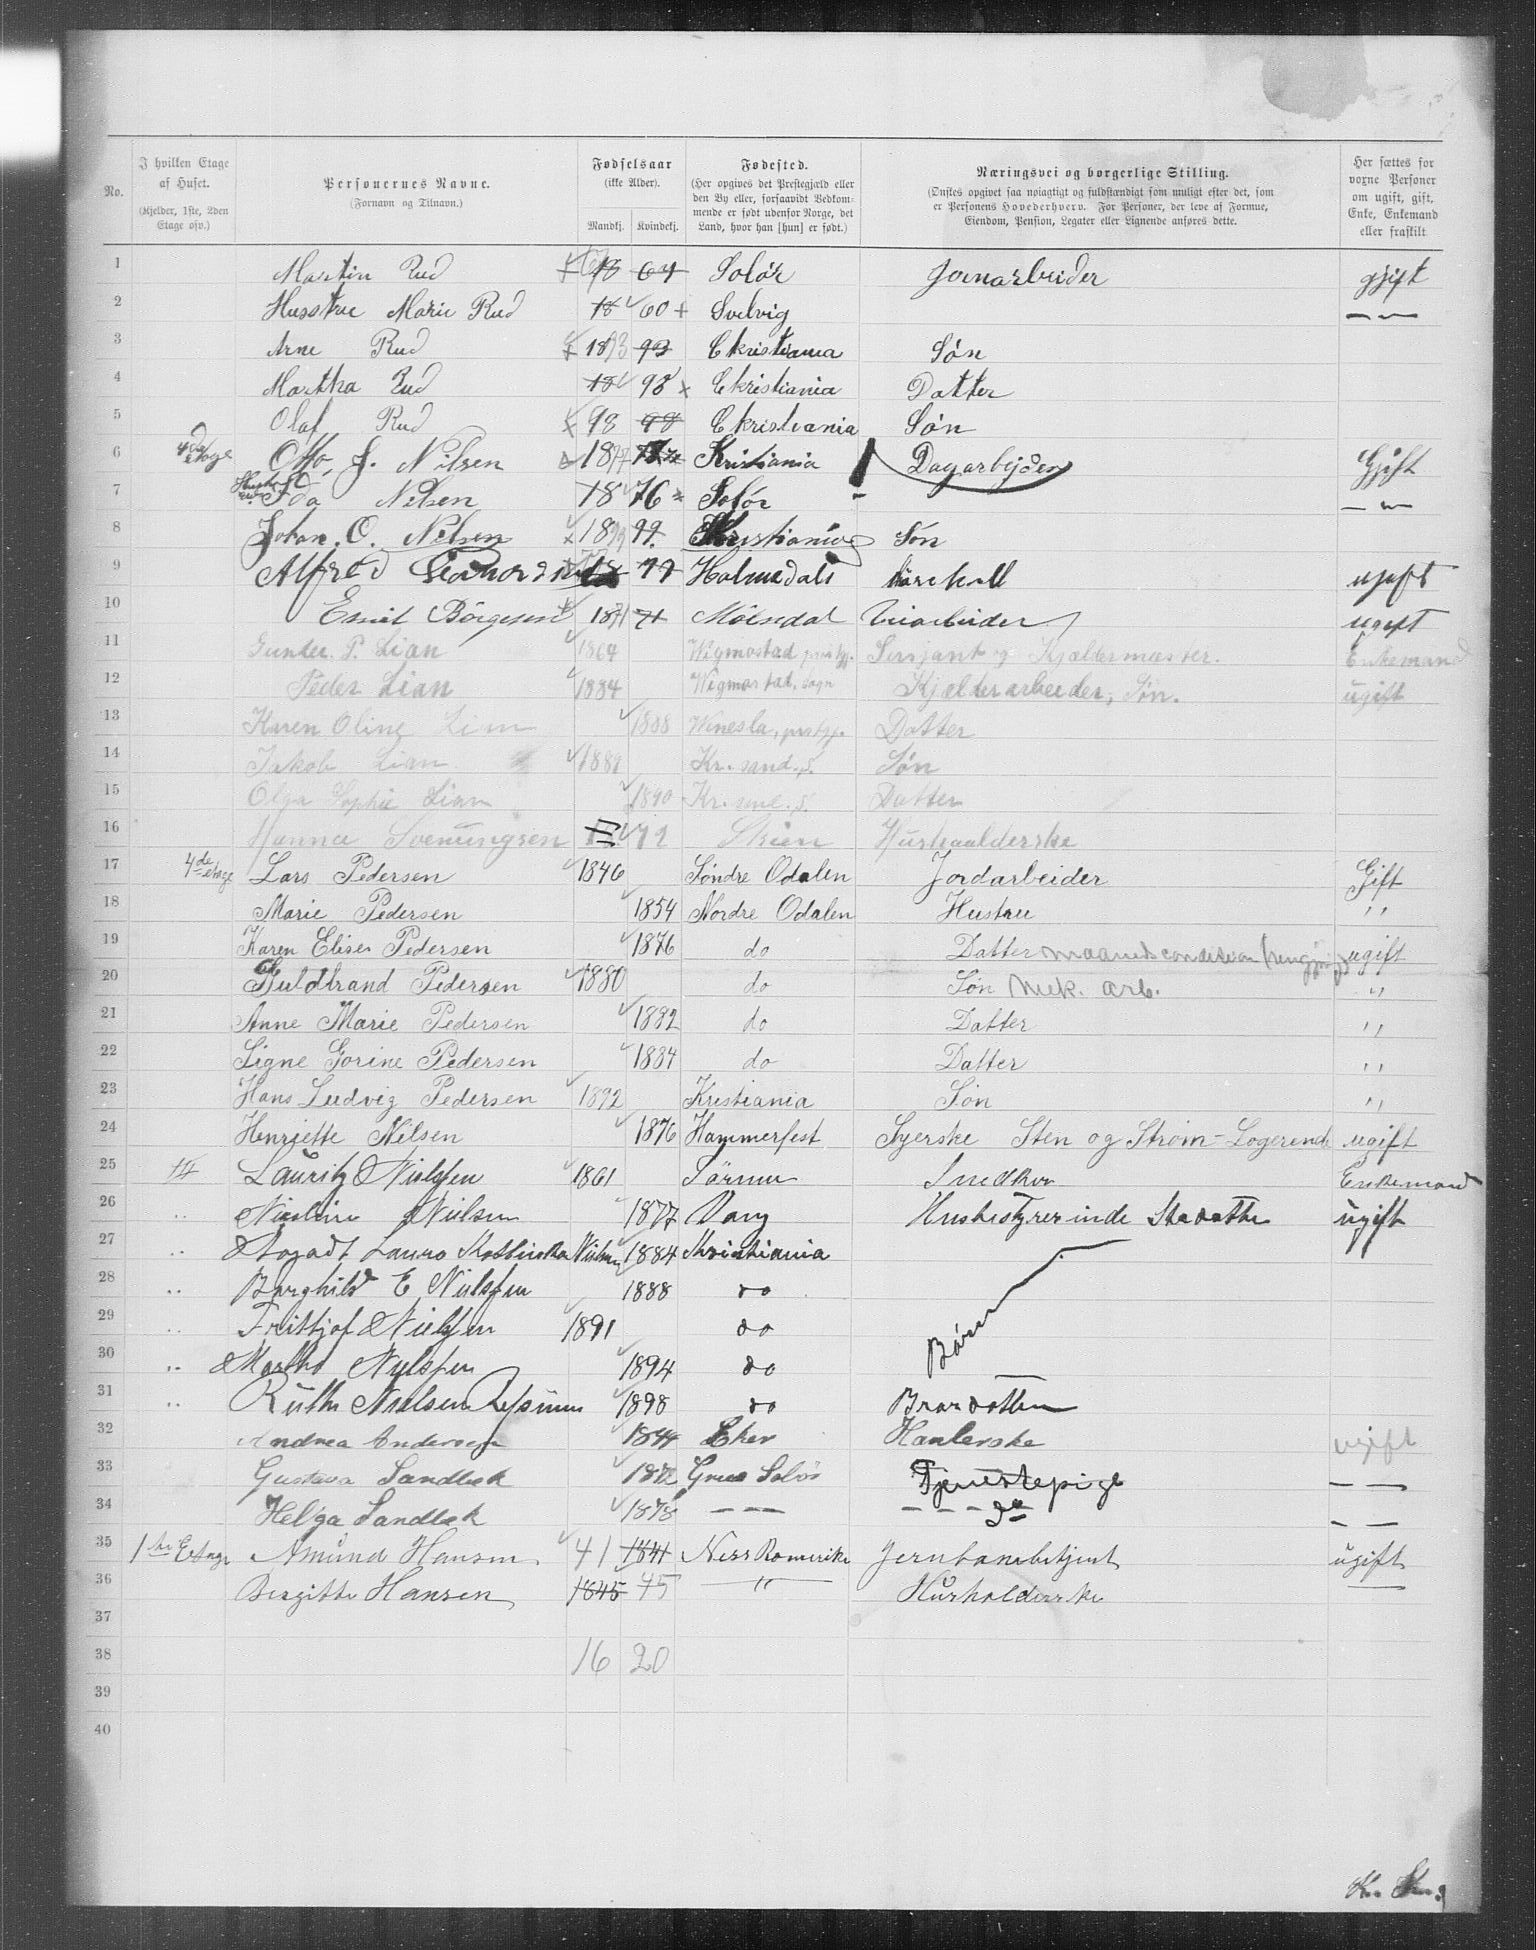 No.
I hvilken Etage af Huset. (Kjelder, 1ste, 2den Etage osv.)
Personernes Navne. (Fornavn og Tilnavn.)
Fødselsaar (ikke Alder). Mandkj. Kvindekj.
Fødested. (Her opgives det Prestegjæld eller den By eller, forsaavidt Vedkommende er født udenfor Norge, det Land, hvor han [hun] er født.)
Næringsvei og borgerlige Stilling. (Ønskes opgivet saa nøiagtigt og fuldstændigt som muligt efter det, som er Personens Hovederhverv. For Personer, der leve af Formue, Eiendom, Pension, Legater eller Lignende anføres dette.
Her sættes for voxne Personer om ugift, gift, Enke, Enkemand eller fraskilt
1 Martin Rud 18 64 Solør Jornarbeider gjift
2 Husstrue Marie Rud 18 60 + Svelvig — „ —
3 Arne Rud 1893 93 Christiania Søn
4 Martha Rud 18 98 x Christiania Datter
5 Olaf Rud 98 98 Christiania Søn
6 4de etage Otto J. Nilsen 1877 Kristiania Dagarbejder Gjift
7 Ida Nilsen 18 76 Solør — „ —
8 Johan. O. Nilsen 1899 99. Kristiania Søn
9 Alfred 77 Holmedals ugift
10 Emil Børgesen 1871 71 Mølndal ugift
11 Gunder. P. Lian 1864 Wigmostad prstgj. Sersjant og Kjældermester. Enkemand
12 Peder Lian 1884 Wigmostad, sogn Kjælderarbeider, Søn. ugift
13 Karen Oline Lian 1888 Wenesla, prstgj. Datter
14 Jakob Lian 1888 Kr. sand. S. Søn
15 Olga Sophie Lian 1890 Kr. sand. S. Datter
16 Hanna Svenungsen 72 Skien Hushaalderske
17 4de etage Lars Pedersen 1846 Søndre Odalen Jordarbeider Gift
18 Marie Pedersen 1854 Nordre Odalen Hustru ,,
19 Karen Elise Pedersen 1876 do Datter ugift
20 Guldbrand Pedersen 1880 do Søn mek. arb. ,,
21 Anne Marie Pedersen 1882 do Datter ,,
22 Signe Gorine Pedersen 1884 do Datter ,,
23 Hans Ludvig Pedersen 1892 Kristiania Søn ,,
24 Henriette Nilsen 1876 Hammerfest Syerske Sten og Strøm - Logerende ugift
25 Lauritz Nielsen 1861 Sørum Snedker Enkemand
26 ,, Nielsen 1877 Vang Husbestyrerinde ugift
27 ,, Laura Nielsen 1884 Kristiania
28 ,, Borghild E Nielsen 1888 do Børn
29 ,, Frittjof Nielsen 1891 do
30 ,, Martha Nielsen 1894 do
31 ,, Ruth Nielsen 1898 do Brordatter
32 Andrea Andersen 1844 Eker Hanlerske ugift
33 Gustava Sandbæk Grue Solør Tjenestepige — —
34 Helga Sandbæk 1878 — — — — — do — —
35 1ste Etage Amund Hansen 41 1841 Ness Romerike Jernbanebetjent ugift
36 Birgitte Hansen 1845 45 — " — Husholderske —
37
38 16 20
39
40